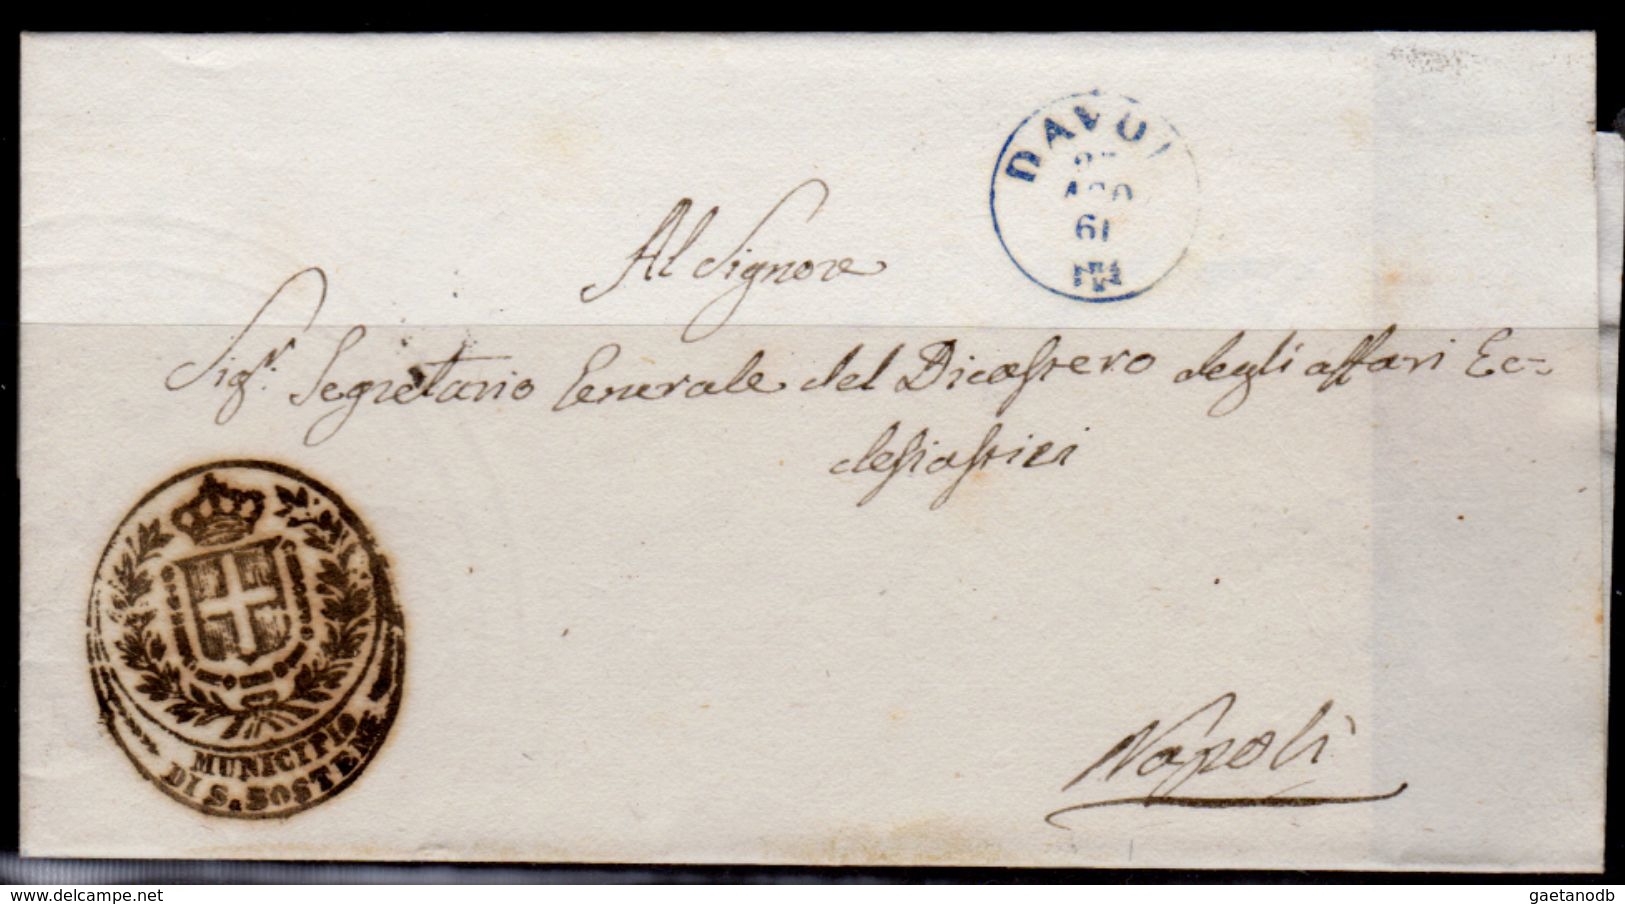 DAVOI
AGO
61
Al Signore
Sig.r Segretario Generale del Dicastero degli affari Ec=
clesiastici
MUNICIPIO
DI Sa. SOSTENE
Napoli
delcampe.net
gaetanodb